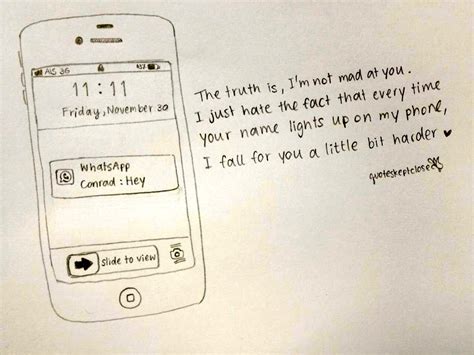 AIS 3G 43%
11:11
Friday, November 30
WhatsApp
Conrad : Hey
Slide to view
The truth is, I'm not mad at you.
I just hate the fact that every time
your name lights up on my phone,
I fall for you a little bit harder ♥
quoteskeptclose